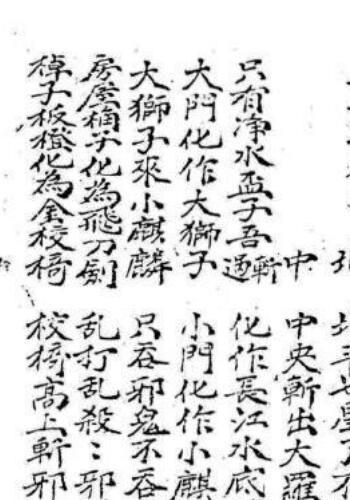 中 中央斬出大羅
只有净水盃子吾 化作長江水底
大門化作大獅子 小門化作小麒
大獅子來小麒麟 只吞邪鬼不吞
房屋桶子化為飛刀劍 乱打乱殺〻邪
棹子板橙化為金校椅 校椅高上斬邪